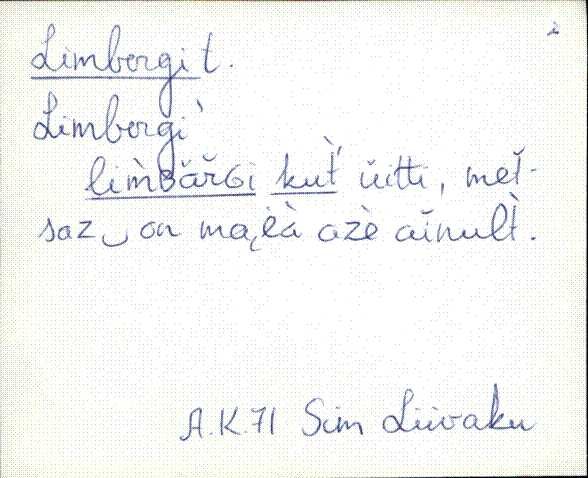 Limbergi t.
Limbergì
lim̀ʙăřɢi kut̀' üitti, meť-
saz‿on ma̭ĺĺà azè aĭnult̀.
A.K.71 Sim Liivaku